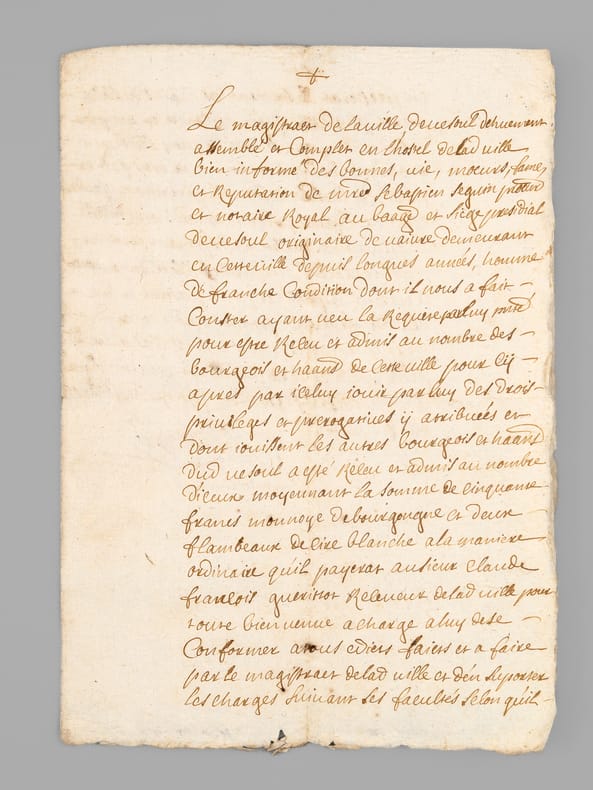 Le magistraet de la ville de vesoul dehuement
assemblé et Complet en l'hostel de lad ville
bien informé des bonnes, vie, mœurs, fame,
et Reputation de mre Sebastien Seguin
et notaire Royal au baage et siege presidial
de vesoul originaire de vaivre demeurant
en Cette ville depuis longues années, homme
de franche Condition dont il nous a fait
Conster ayant veu la Requete par luy
pour estre Receu et admis au nombre des
bourgeois et haans de Cette ville pour Cy
apres par iceluy iouir par luy des drois
privileges et prerogatives ij atribuées et
dont iouissent les autres bourgeois et haans
dud vesoul a esté Receu et admis au nombre
d'iceux moyennant la somme de Cinquante
francs monnoye de bourgongne et deux
flambeaux de Cire blanche a la maniere
ordinaire qu'il payerat au sieur Claude
françois Receveur de lad ville pour
toute bien venue a charge a luy de se
Conformer a tous edicts faicts et a faire
par le magistraet de lad ville et d'en suporter
les charges suivant ses facultés selon qu'il